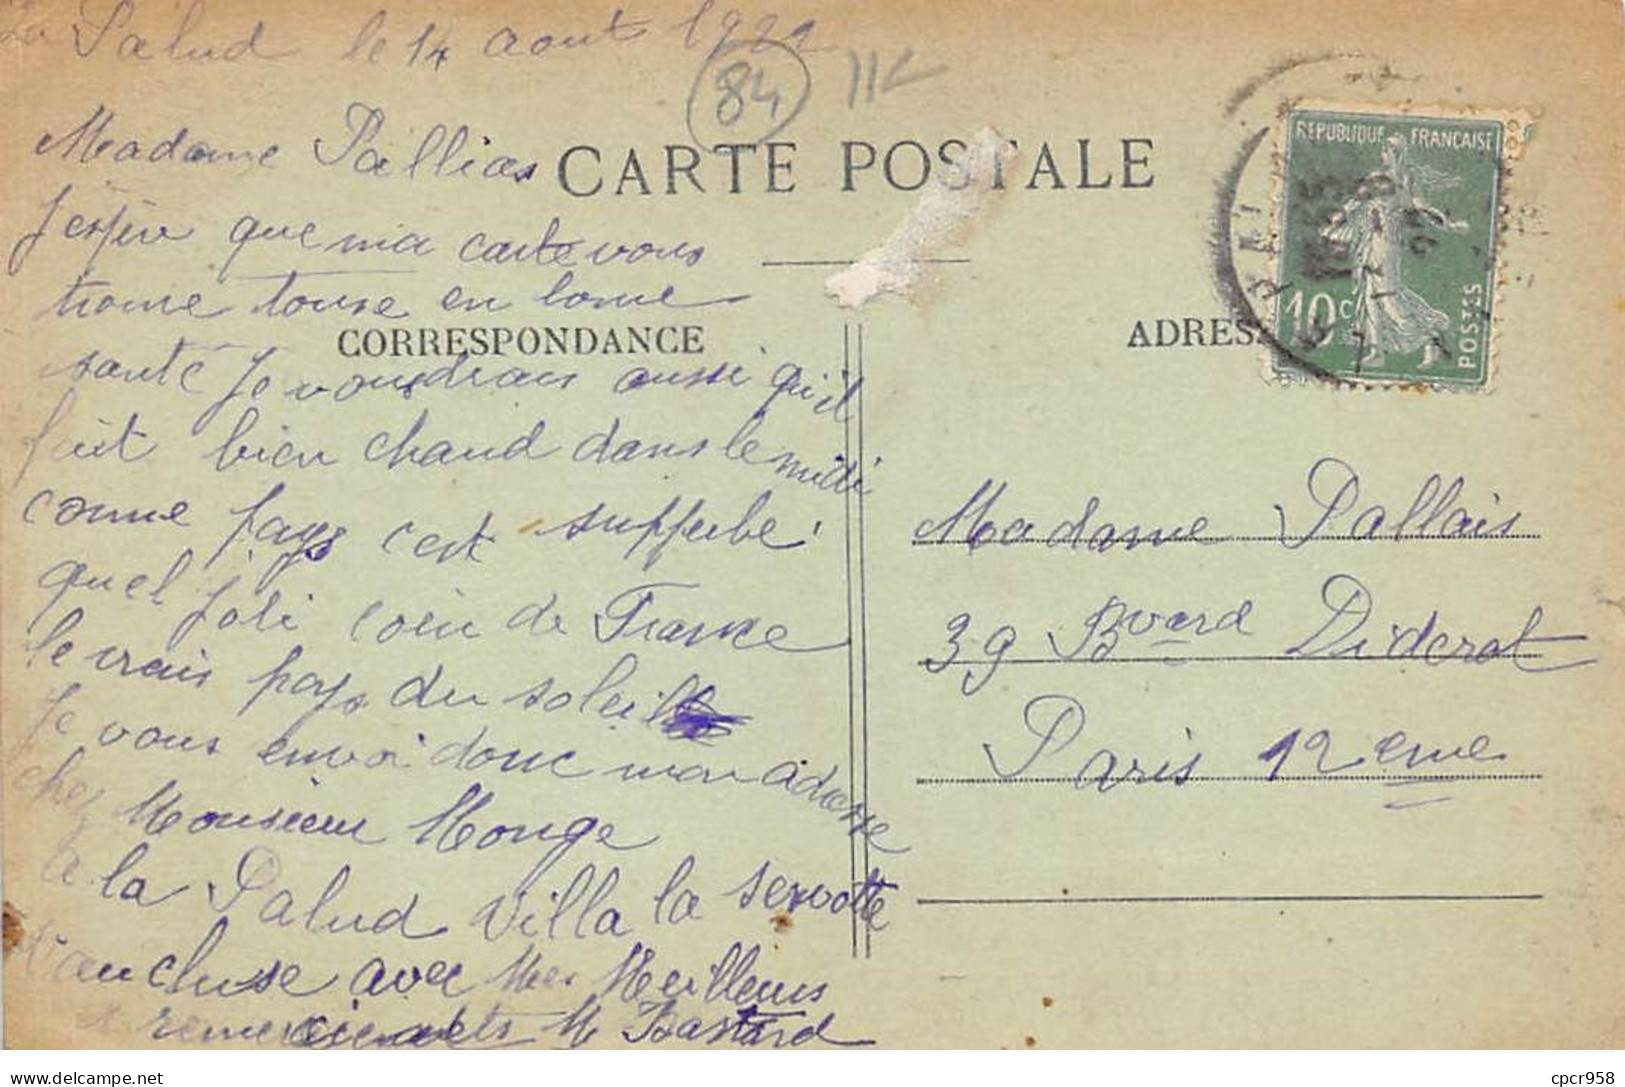 La Palud le 14 aout 1922
84
CARTE POSTALE
Madame Pallias
J'espère que ma carte vous
trouve touse en bonne
CORRESPONDANCE
santé Je voudrais aussi qu'il
fait bien chaud dans le midi
comme pays c'est supperbe.
quel joli coin de France
le vrais pays du soleil
Je vous envoi donc mon adresse
chez Monsieur Monge
a la Palud villa la servotte
Vaucluse avec Mes Meilleurs
et remerciements M Bastard
REPUBLIQUE FRANÇAISE
10c
POSTES
ADRESSE
Madame Pallais
39 Bvard Diderot
Paris 12eme
delcampe.net
cpcr958